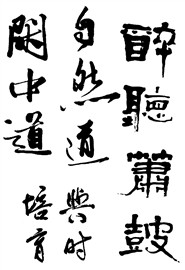 醉聽蕭鼓
自然道
與时
閑中道
培育